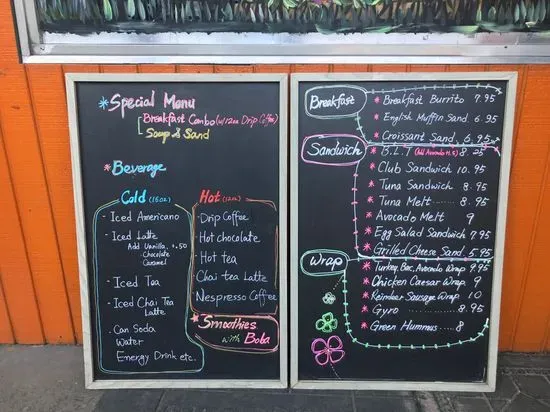 * Special Menu
[Breakfast Combo (w/12oz Drip Coffee)
Soup & Sand
* Beverage
Cold (16oz)
- Iced Americano
- Iced Latte
Add Vanilla, +.50
Chocolate
Caramel
- Iced Tea
- Iced Chai Tea
Latte
- Can Soda
Water
Energy Drink etc.
Hot (12oz)
- Drip Coffee
- Hot chocolate
- Hot tea
- Chai tea Latte
- Nespresso Coffee
* Smoothies
with Boba
Breakfast
* Breakfast Burrito 7.95
* English Muffin Sand 6.95
* Croissant Sand. 6.95
Sandwich
* B.L.T (Add Avocado +1.5) 8.25
* Club Sandwich 10.95
* Tuna Sandwich 8.95
* Tuna Melt 8.95
* Avocado Melt 9
* Egg Salad Sandwich 7.95
* Grilled Cheese Sand. 5.95
Wrap
* Turkey, Bac, Avocado Wrap 9.95
* Chicken Caesar Wrap 9
* Reindeer Sausage Wrap 10
* Gyro 8.95
* Green Hummus 8